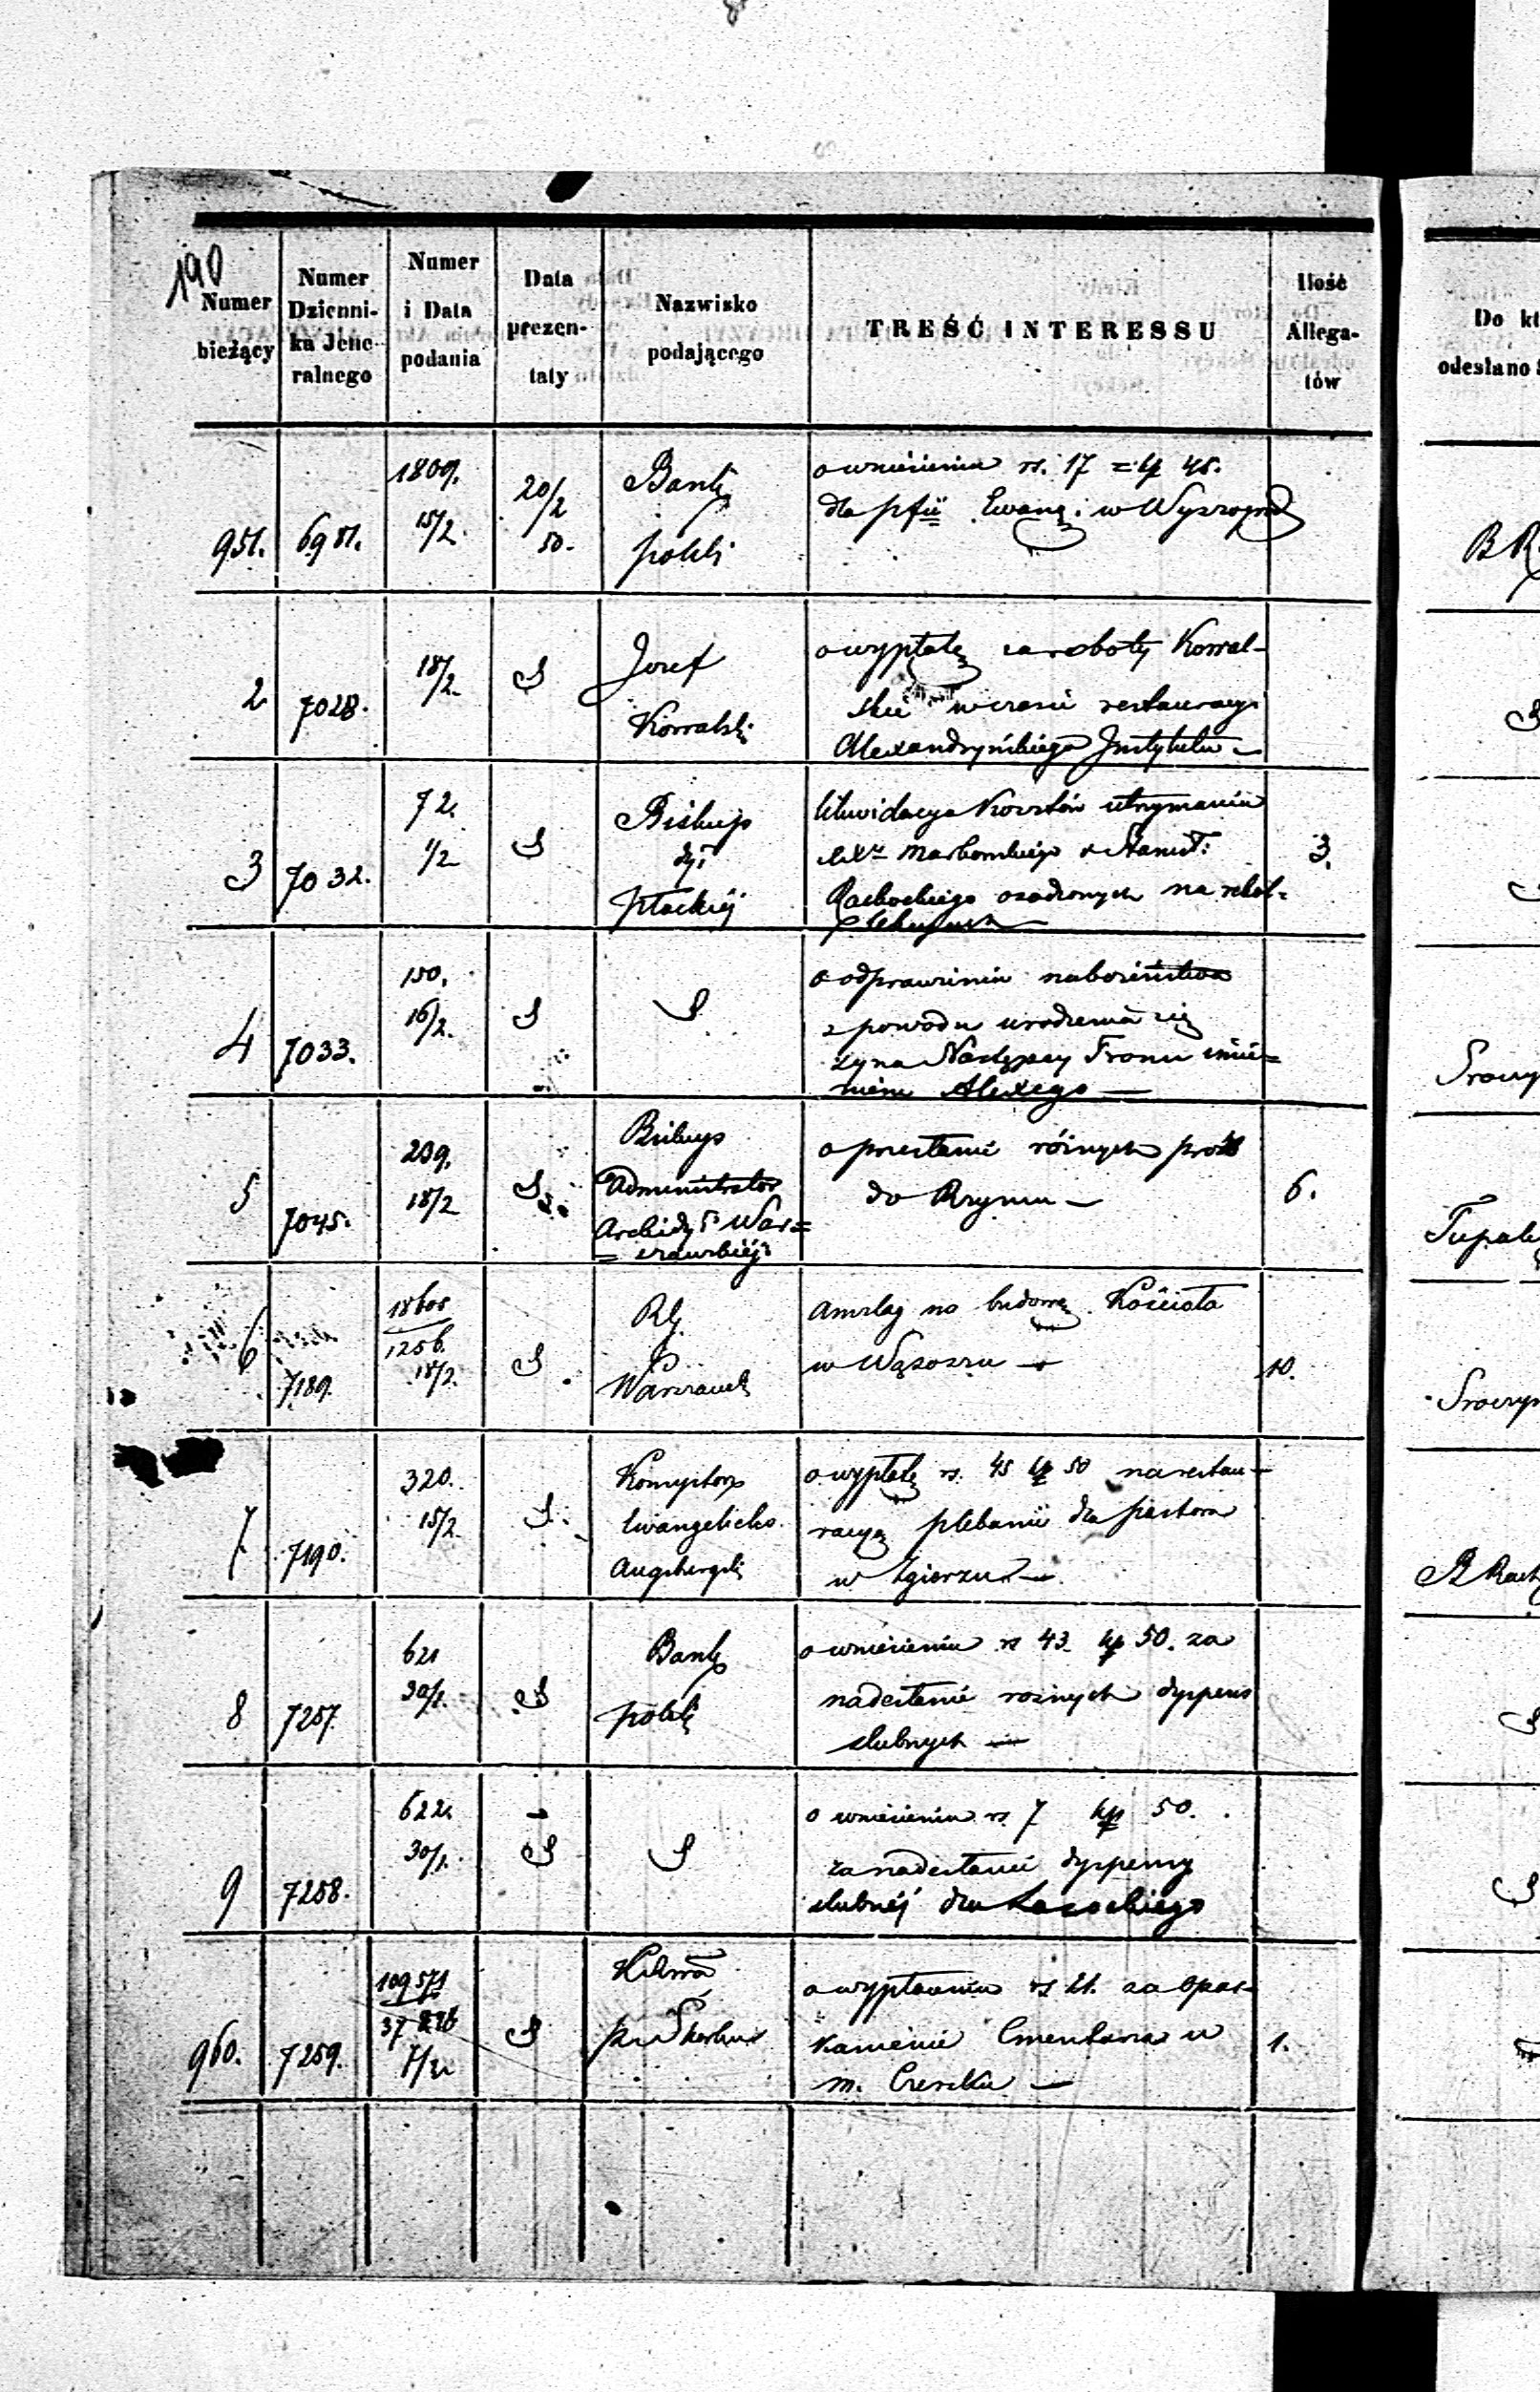 190
Numer bieżący
Numer Dzienni-ka Jene-ralnego
Numer i Data podania
Data prezen-taty
Nazwisko podającego
TREŚĆ INTERESSU
Ilość Allega-tów
Do kt
odesłano
951. 6981. 1809. 15/2. 20/2 50. Bank polski
o wniesieniu rs. 17 = kp 45.
dla pfii Ewang: w Wyszogrod
B R
2 7028. 18/2. S Jozef Kowalski
o wypłatę za roboty Kowal-
skie w czasie restauracyi
Alexandryńskiego Instytutu —
3 7032. 72. 1/2 S Biskup dyi Płockiéj
likwidacya Kosztów utrzymania
Rachockiego osadzonych na rekol=
3.
4 7033. 150. 16/2. S S
o odprawieniu nabożeństwa
z powodu urodzenia się
syna Następcy Tronu imie=
niem Alexego —
5 7045. 239. 18/2 S Biskup Administrator Archidyi War=
= szawskiéj
o przesłanie różnych próśb
do Rzymu —
6.
6 7189. 18605 1256. 18/2. S RG. Warszawsk
Anszlag na budowę Kościoła
w Wąsoszu —
10.
7 7190. 320. 15/2 S Konsystorz Ewangelicko Augsburgski
o wypłatę rs. 45 kp 50 na restau-
racyą plebanii dla pastora
w Zgierzu —
B Rach
8 7257. 621 30/1. S Bank polski
o wniesieniu rs 43 kp 50. za
nadesłanie rożnych dyspens
slubnych —
9 7258. 622. 30/1. S S
o wniesieniu rs. 7 kp 50.
za nadesłanie dyspensy
slubnéj dla Łasockiego
960. 7259. 109571 S
o wypłaceniu rs 21. za opar-
kanienie Cmentarza w
m. Czersku —
1.